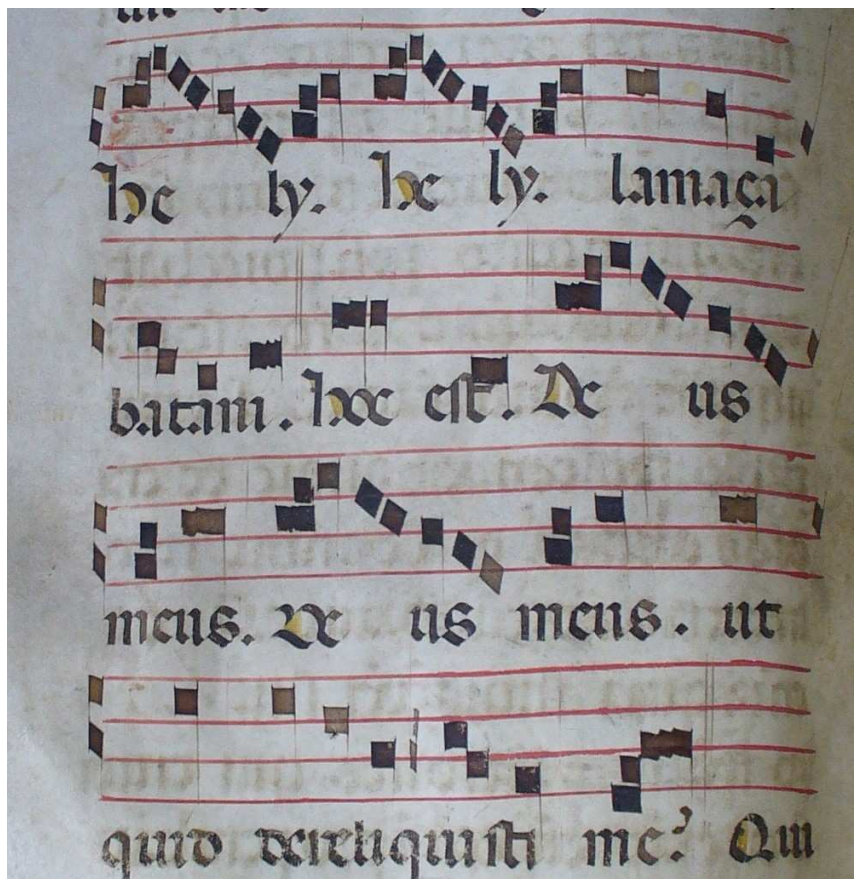 hely. hely. lamaça
batani. hoc est. Deus
meus. Deus meus. ut
quid dereliquisti me? Qui